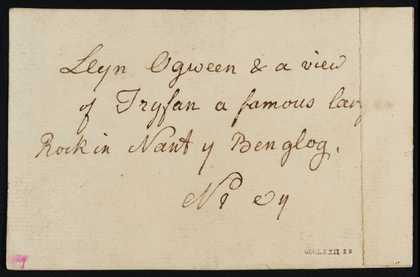 Llyn Ogween & a view
of Tryfan a famous
Rock in Nant y Benglog.